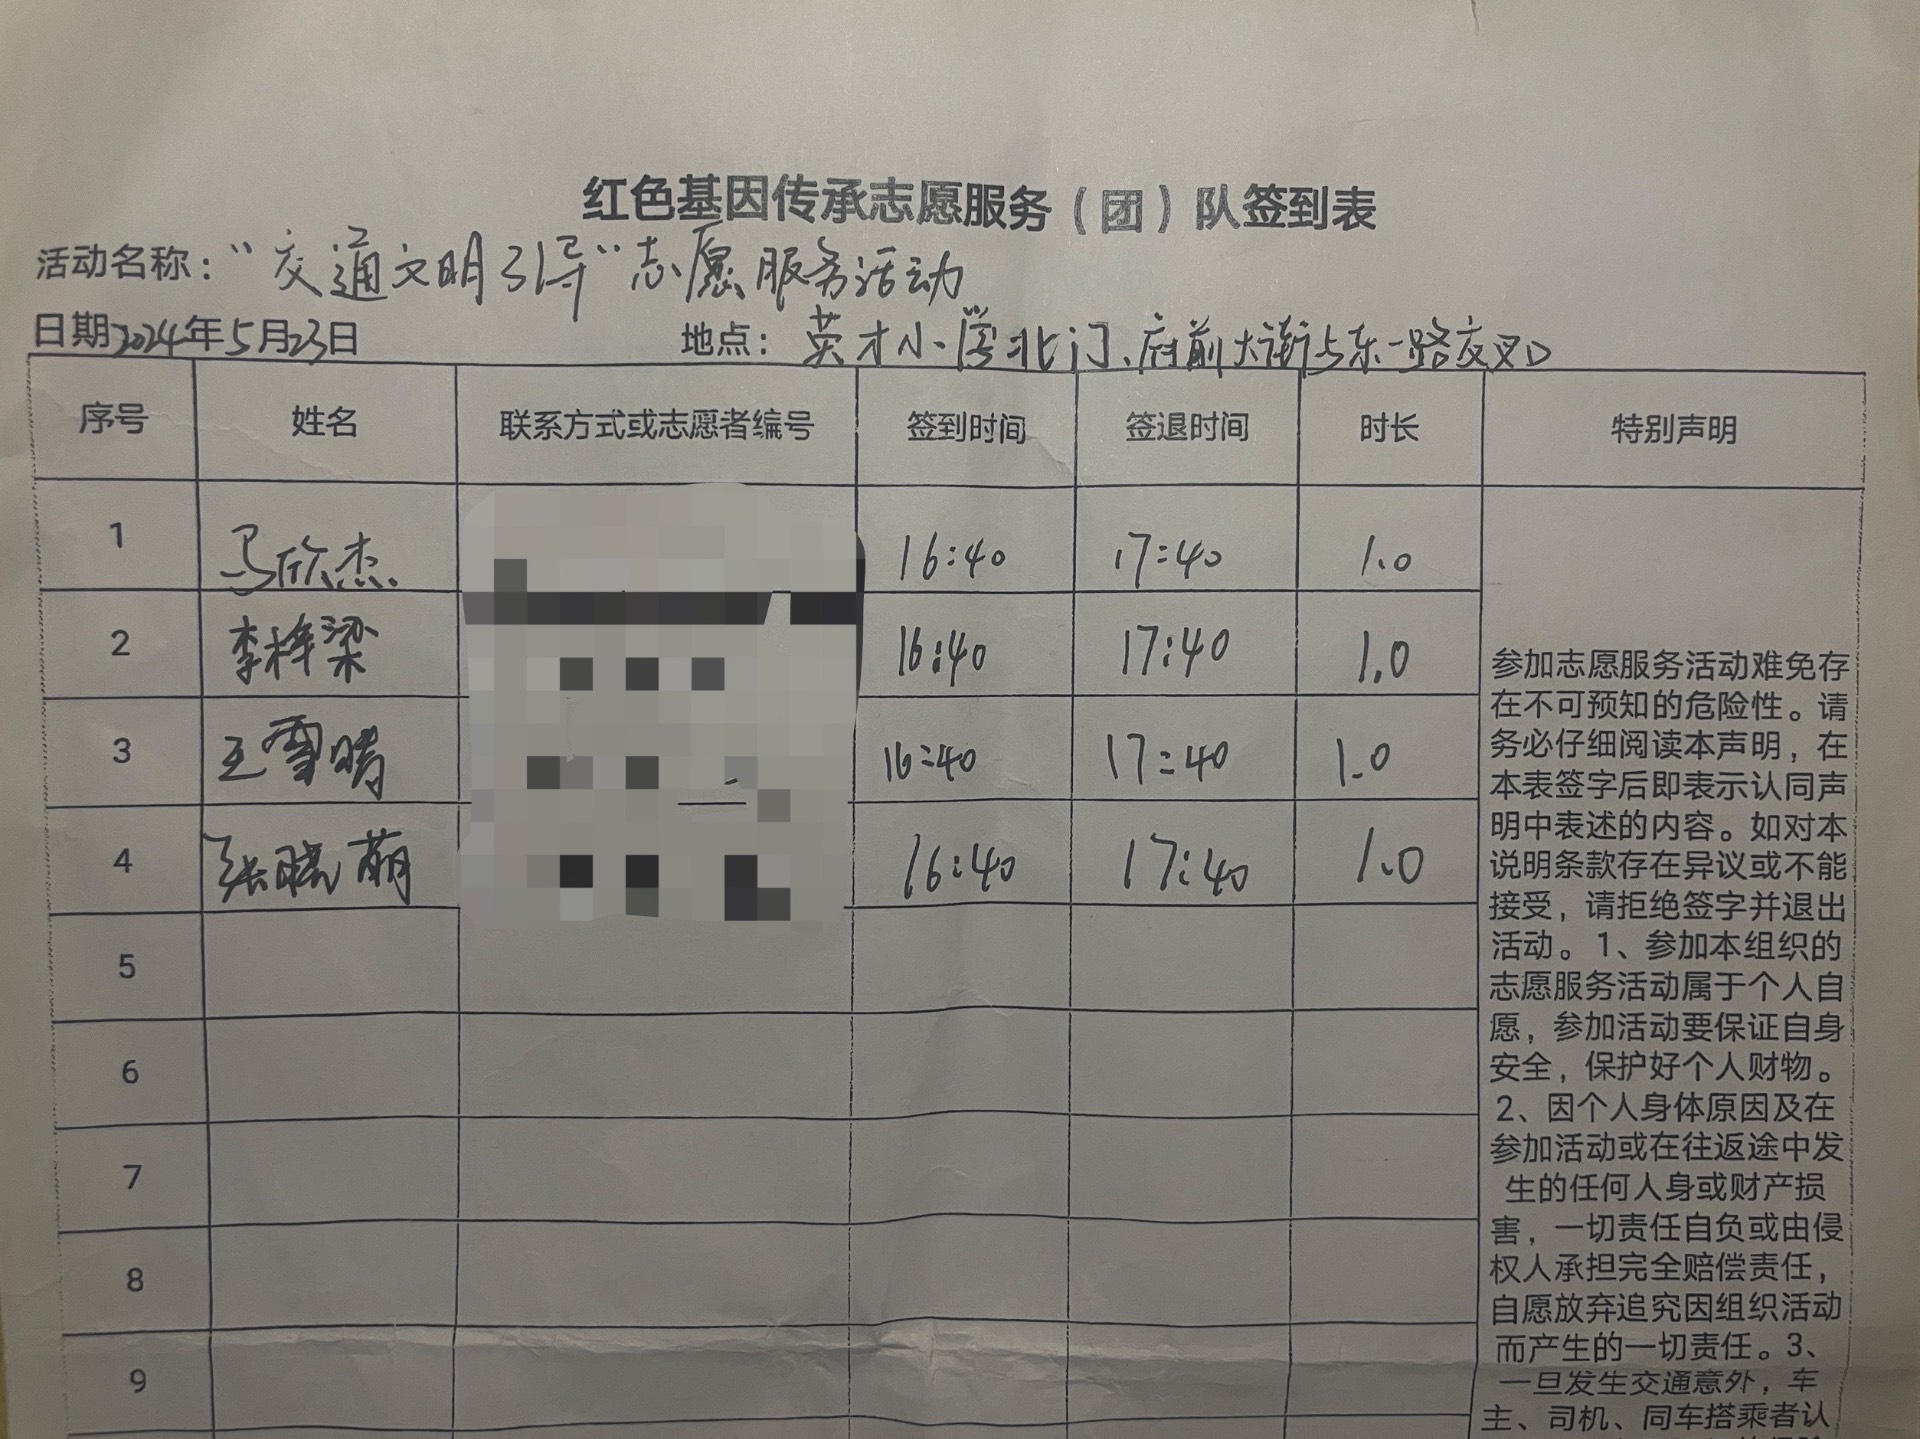 红色基因传承志愿服务（团）队签到表
活动名称：“交通文明引导”志愿服务活动
日期2024年5月23日
地点：英才小学北门、府前大街与东一路交叉口
序号 姓名 联系方式或志愿者编号 签到时间 签退时间 时长 特别声明
1 马欣杰 16:40 17:40 1.0
2 李梓梁 16:40 17:40 1.0
3 王雪晴 16:40 17:40 1.0
4 张晓萌 16:40 17:40 1.0
5
6
7
8
9
参加志愿服务活动难免存
在不可预知的危险性。请
务必仔细阅读本声明，在
本表签字后即表示认同声
明中表述的内容。如对本
说明条款存在异议或不能
接受，请拒绝签字并退出
活动。1、参加本组织的
志愿服务活动属于个人自
愿，参加活动要保证自身
安全，保护好个人财物。
2、因个人身体原因及在
参加活动或在往返途中发
生的任何人身或财产损
害，一切责任自负或由侵
权人承担完全赔偿责任，
自愿放弃追究因组织活动
而产生的一切责任。3、
一旦发生交通意外，车
主、司机、同车搭乘者认